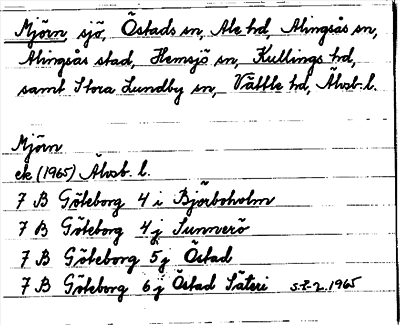 Mjörn, sjö, Östads sn, Ale hd, Alingsås sn,
Alingsås stad, Hemsjö sn, Kullings hd,
samt Stora Lundby sn, Vättle hd, Älvsb. l.
Mjörn
ek (1965) Älvsb. l.
7 B Göteborg 4 i Björboholm
7 B Göteborg 4 j Sunnerö
7 B Göteborg 5 j Östad
7 B Göteborg 6 j Östad Säteri s. 2. 1965